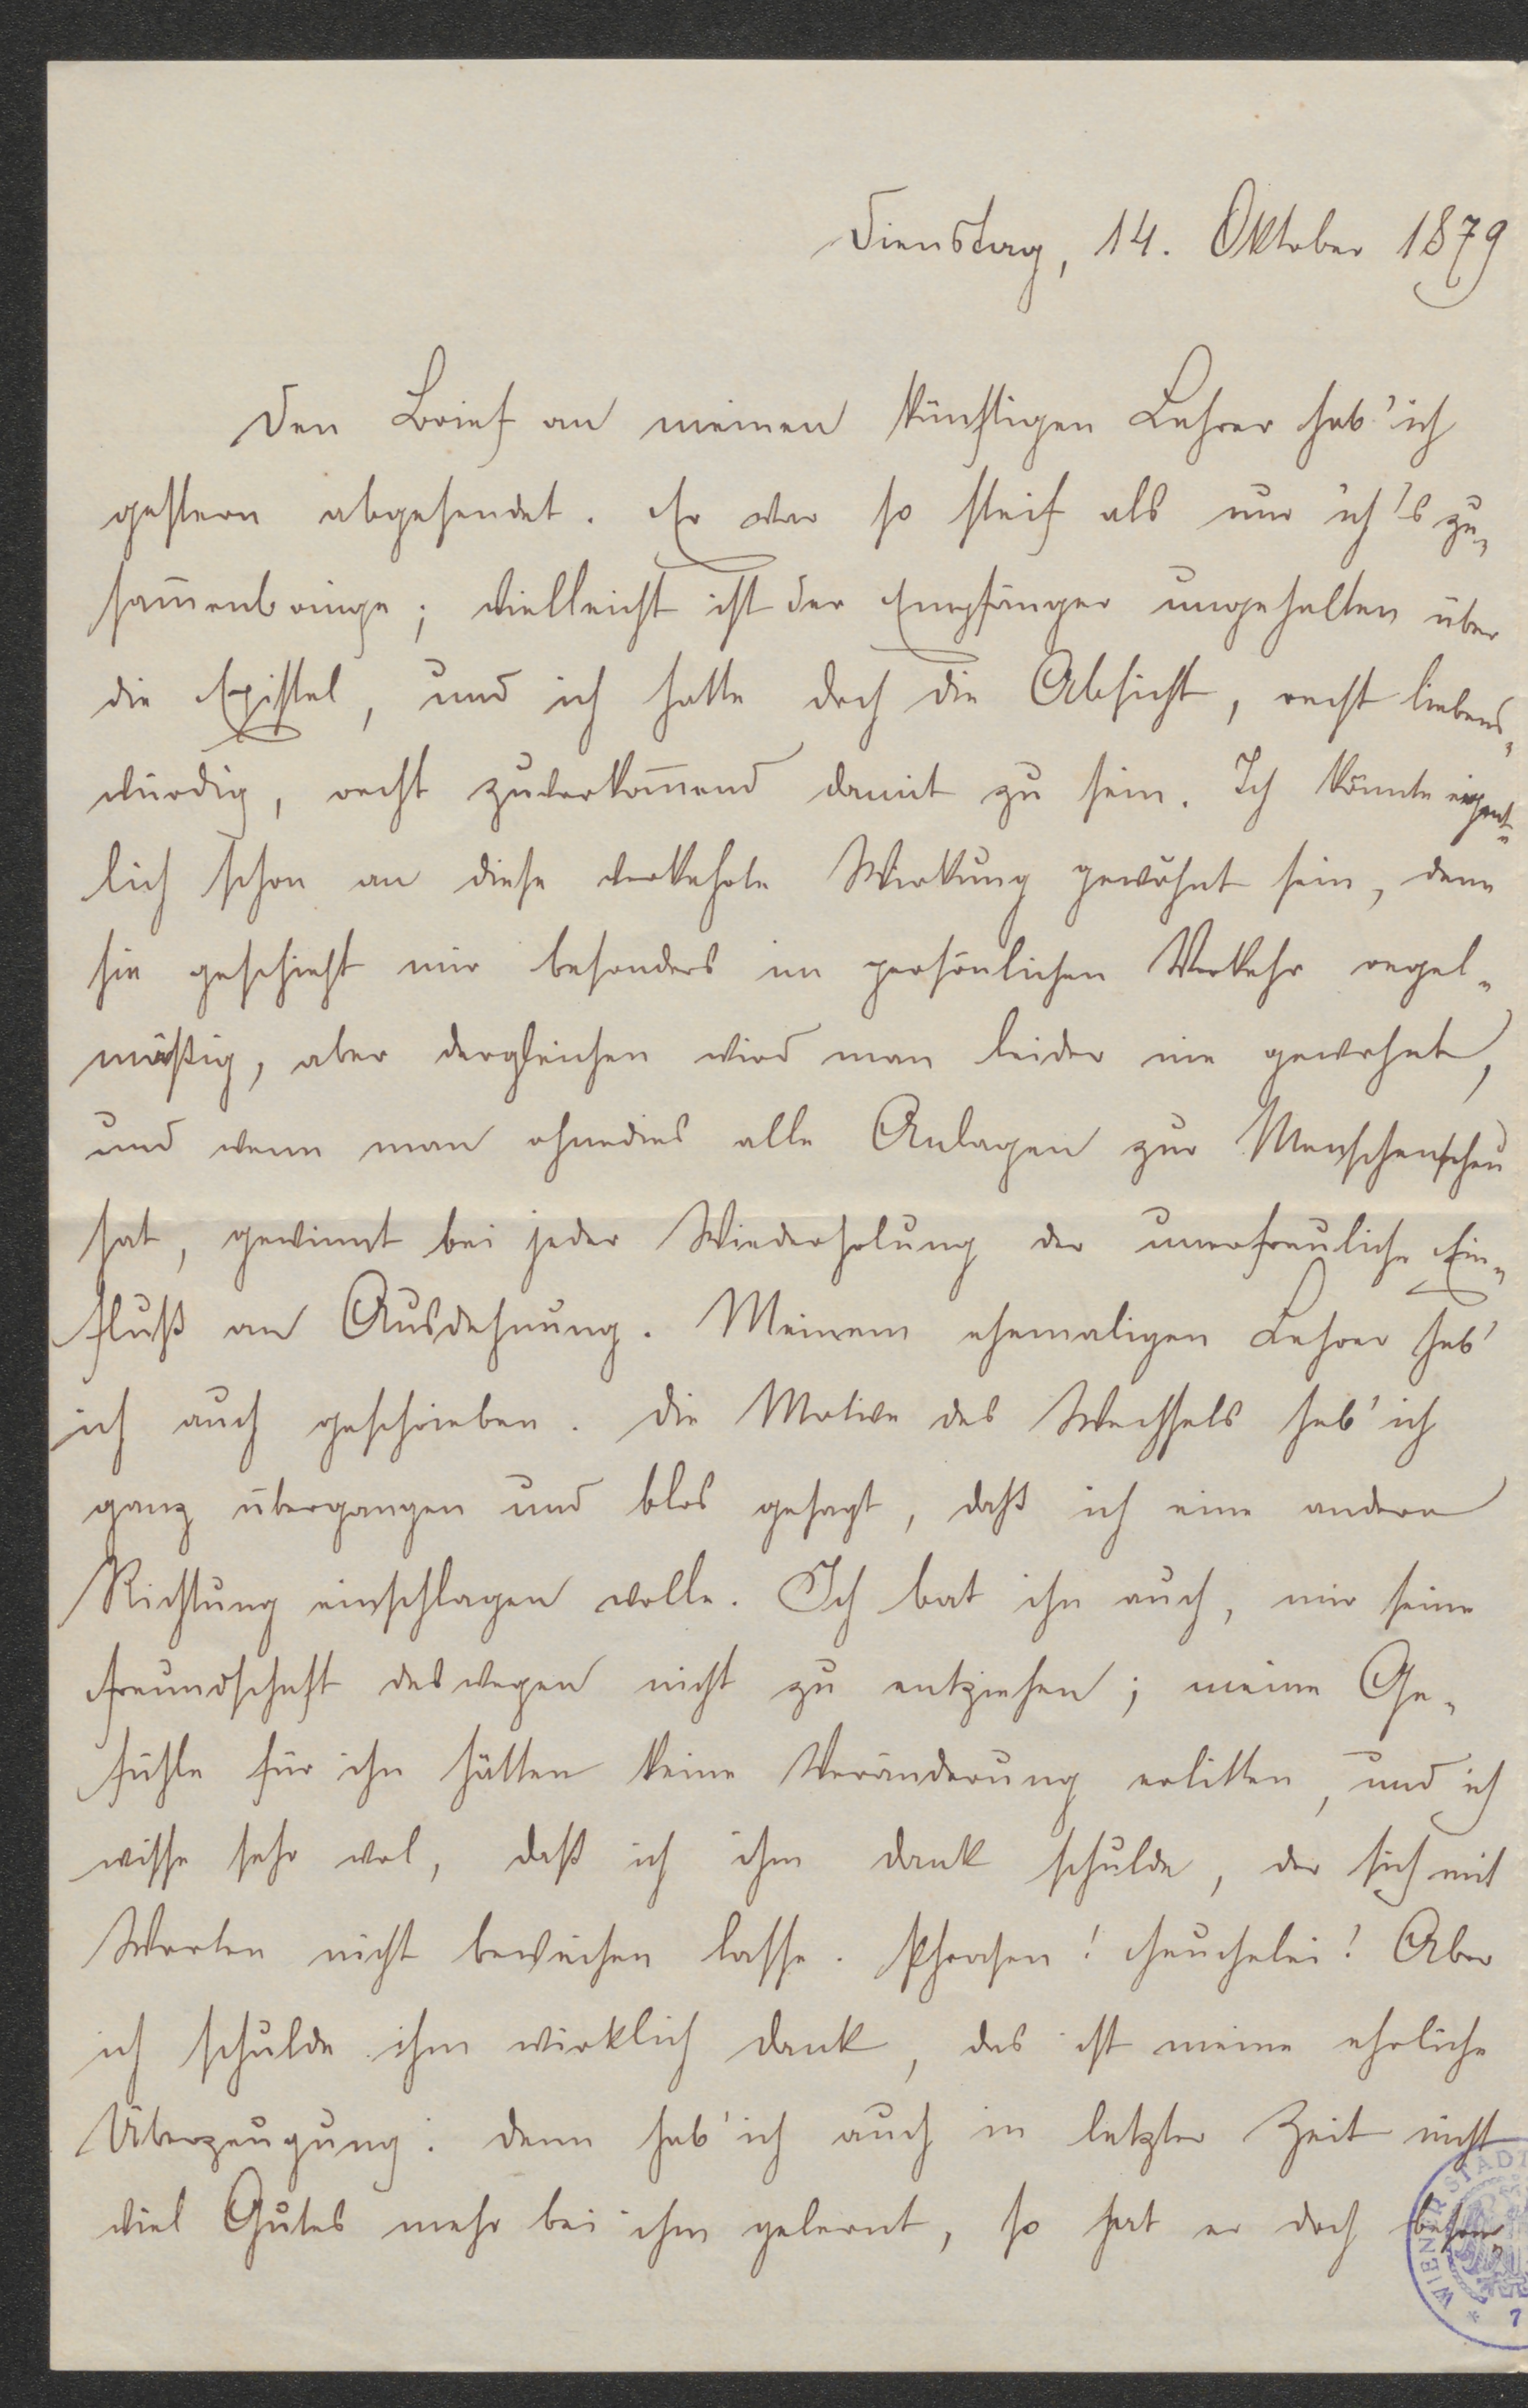 Dienstag, 14. Oktober 1879
Den Brief an meinen künftigen Lehrer hab' ich
gestern abgesendet. Er war so steif als nur ich's zu¬
sam̄enbringe; vielleicht ist der Empfänger ungehalten über
die Epistel, und ich hatte doch die Absicht, recht liebens¬
würdig, recht zuvorkom̄end damit zu sein. Ich könnte eigent¬
lich schon an diese verkehrte Wirkung gewöhnt sein, denn
sie geschieht mir besonders im persönlichen Verkehr regel¬
mäßig, aber dergleichen wird man leider nie gewohnt,
und wenn man ohnedies alle Anlagen zur Menschenscheu
hat, gewinnt bei jeder Wiederholung der unerfreuliche Ein¬
fluß an Ausdehnung. Meinem ehemaligen Lehrer hab'
ich auch geschrieben. Die Motive des Wechsels hab' ich
ganz übergangen und blos gesagt, daß ich eine andere
Richtung einschlagen wolle. Ich bat ihn auch, mir seine
Freundschaft deswegen nicht zu entziehen; meine Ge¬
fühle für ihn hätten keine Veränderung erlitten, und ich
wisse sehr wol, daß ich ihm Dank schulde, der sich mit
Worten nicht beweisen lasse. Phrasen! Heuchelei! Aber
ich schulde ihm wirklich Dank, das ist meine ehrliche
Überzeugung: denn hab' ich auch in letzter Zeit nicht
viel Gutes mehr bei ihm gelernt, so hat er doch beson¬
WIENER STADT
7